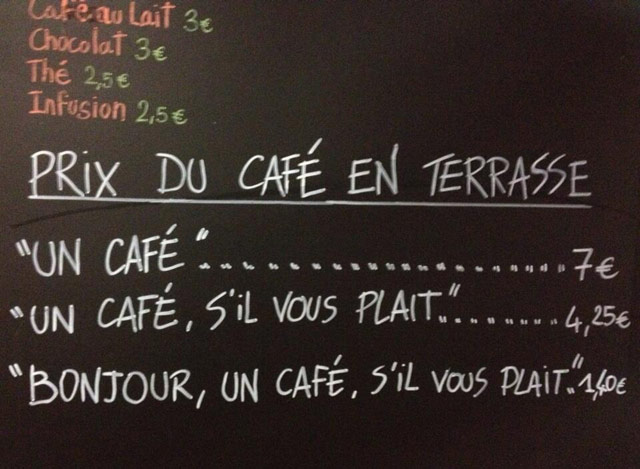 Café au Lait 3€
Chocolat 3€
Thé 2,5€
Infusion 2,5€
PRIX DU CAFÉ EN TERRASSE
"UN CAFÉ"..................... 7€
"UN CAFÉ, S'IL VOUS PLAIT."......... 4,25€
"BONJOUR, UN CAFÉ, S'IL VOUS PLAIT." 1,40€